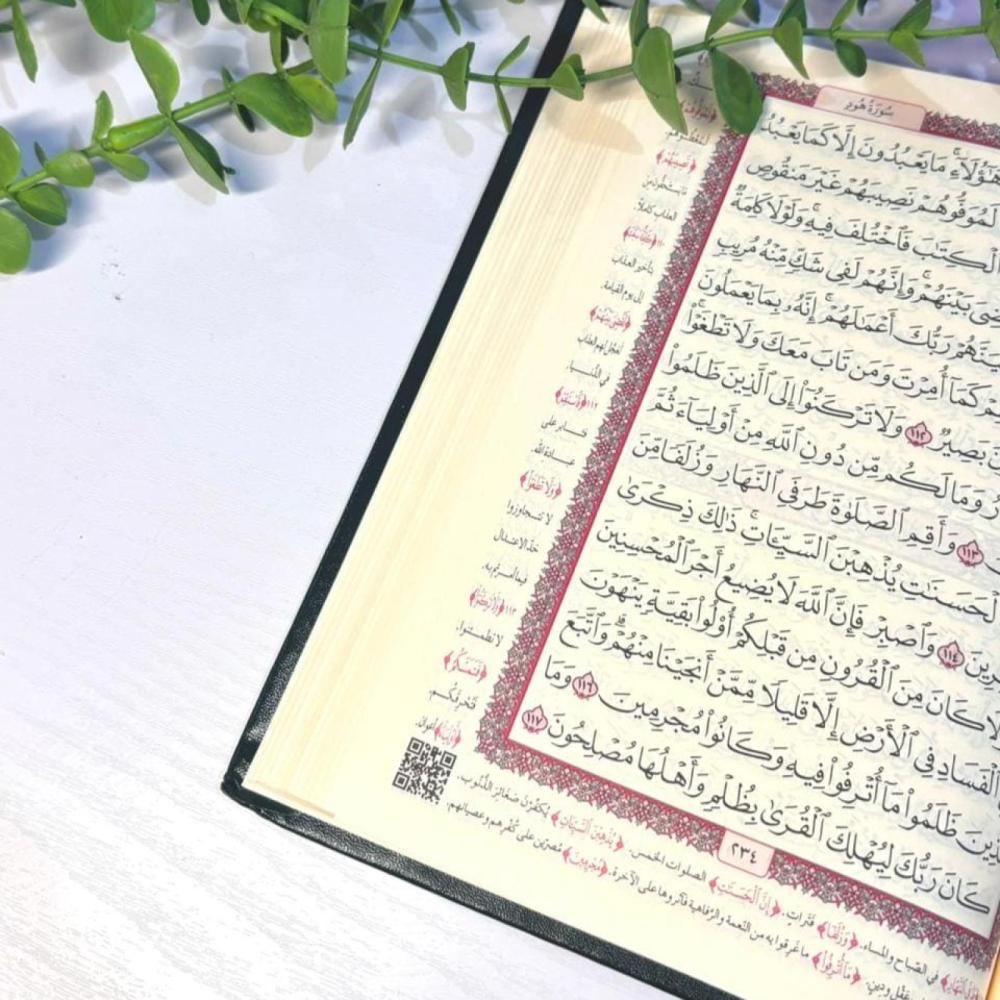 سُورَةُ هُودٍ
هَٰٓؤُلَآءِۚ مَا يَعۡبُدُونَ إِلَّا كَمَا يَعۡبُدُ
لَمُوَفُّوهُمۡ نَصِيبَهُمۡ غَيۡرَ مَنقُوصٖ
ٱلۡكِتَٰبَ فَٱخۡتُلِفَ فِيهِۚ وَلَوۡلَا كَلِمَةٞ
بَيۡنَهُمۡۚ وَإِنَّهُمۡ لَفِي شَكّٖ مِّنۡهُ مُرِيبٖ
رَبُّكَ أَعۡمَٰلَهُمۡۚ إِنَّهُۥ بِمَا يَعۡمَلُونَ
كَمَآ أُمِرۡتَ وَمَن تَابَ مَعَكَ وَلَا تَطۡغَوۡاْۚ
بَصِيرٞ ١١٢ وَلَا تَرۡكَنُوٓاْ إِلَى ٱلَّذِينَ ظَلَمُواْ
وَمَا لَكُم مِّن دُونِ ٱللَّهِ مِنۡ أَوۡلِيَآءَ ثُمَّ
١١٣ وَأَقِمِ ٱلصَّلَوٰةَ طَرَفَيِ ٱلنَّهَارِ وَزُلَفٗا مِّنَ
ٱلۡحَسَنَٰتِ يُذۡهِبۡنَ ٱلسَّيِّـَٔاتِۚ ذَٰلِكَ ذِكۡرَىٰ
١١٤ وَٱصۡبِرۡ فَإِنَّ ٱللَّهَ لَا يُضِيعُ أَجۡرَ ٱلۡمُحۡسِنِينَ
كَانَ مِنَ ٱلۡقُرُونِ مِن قَبۡلِكُمۡ أُوْلُواْ بَقِيَّةٖ يَنۡهَوۡنَ
ٱلۡفَسَادِ فِي ٱلۡأَرۡضِ إِلَّا قَلِيلٗا مِّمَّنۡ أَنجَيۡنَا مِنۡهُمۡۗ وَٱتَّبَعَ
ظَلَمُواْ مَآ أُتۡرِفُواْ فِيهِ وَكَانُواْ مُجۡرِمِينَ ١١٦ وَمَا
كَانَ رَبُّكَ لِيُهۡلِكَ ٱلۡقُرَىٰ بِظُلۡمٖ وَأَهۡلُهَا مُصۡلِحُونَ ١١٧
٢٣٤
﴿نَصِيبَهُمۡ﴾
العذاب كاملاً.
بتأخير العذاب
إلى يوم القيامة.
في الدُّنيا.
١١٢
عبادة الله.
﴿وَلَا تَطۡغَوۡاْ﴾
لا تتجاوزوا
حدَّ الاعتدال
١١٣ ﴿وَلَا تَرۡكَنُوٓاْ﴾
لا تطمئنّوا.
﴿فَتَمَسَّكُمُ﴾
فتحرقكم.
في الصَّباح والمساء. ﴿وَزُلَفٗا﴾ فترات. ﴿إِنَّ ٱلۡحَسَنَٰتِ﴾ الصلوات الخمس. ﴿يُذۡهِبۡنَ ٱلسَّيِّـَٔاتِ﴾ يُكفِّرنَ صغائرَ الذُّنوب.
عقل ودين. ﴿مَآ أُتۡرِفُواْ﴾ ما غرقوا به من النَّعمة والرَّفاهية فآثروها على الآخرة. ﴿مُجۡرِمِينَ﴾ مُصِرّين على كفرهم وعصيانهم.